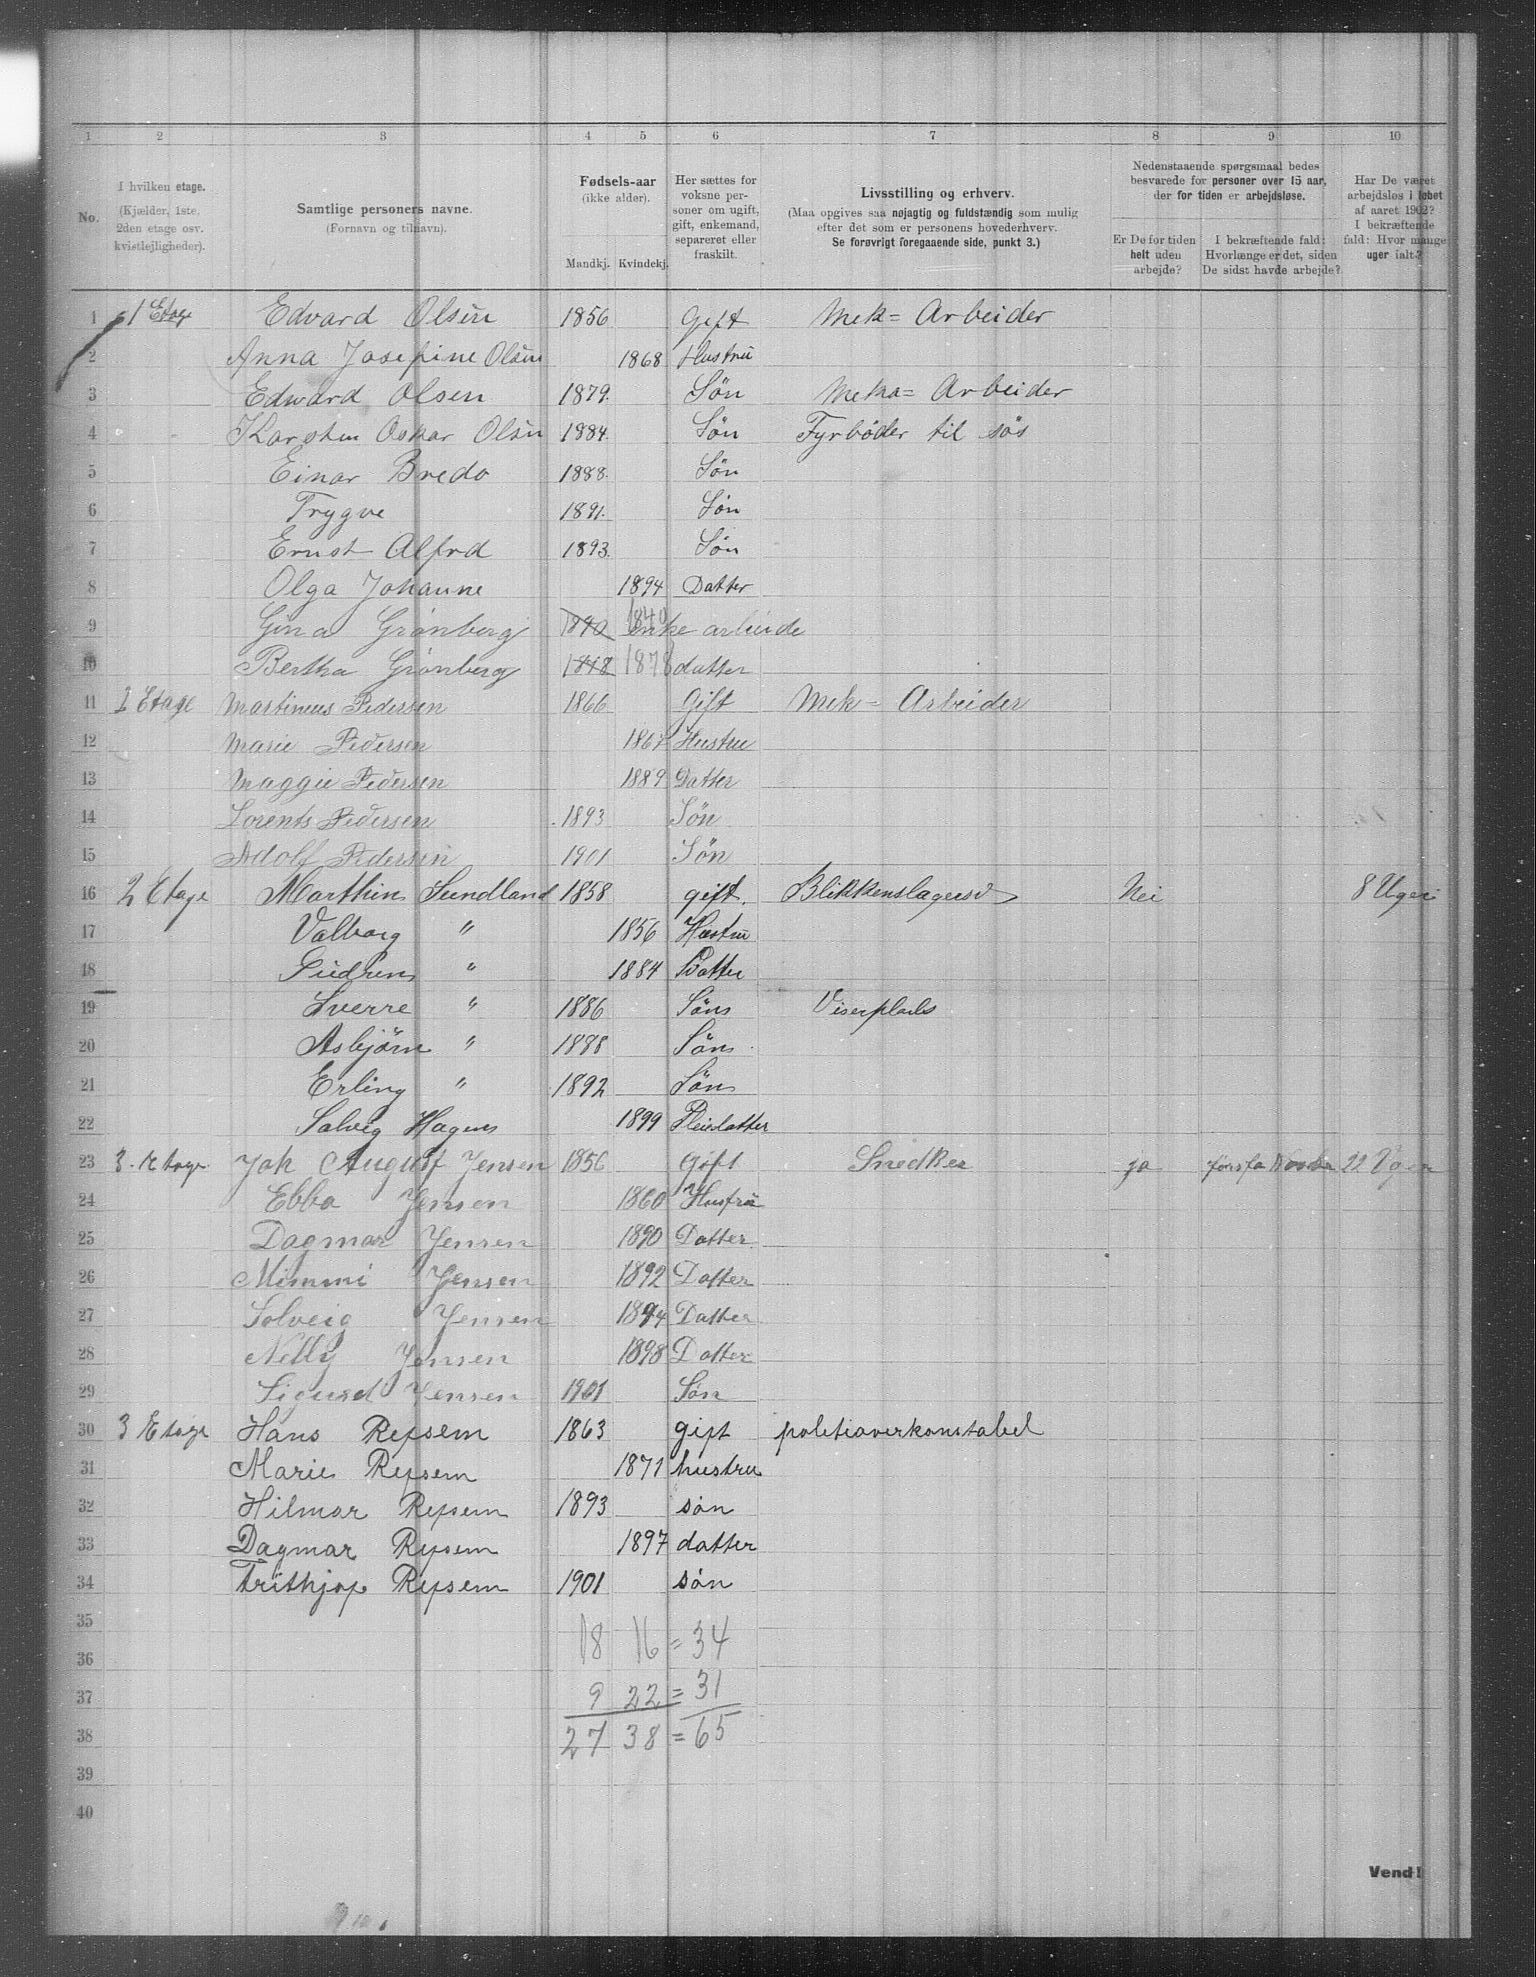 1 2 3 4 5 6 7 8 9 10
No.
I hvilken etage.
(Kjælder, 1ste, 2den etage osv. kvistlejligheder).
Samtlige personers navne.
(Fornavn og tilnavn).
Fødsels-aar
(ikke alder).
Mandkj. Kvindekj.
Her sættes for voksne personer om ugift, gift, enkemand, separeret eller fraskilt.
Livsstilling og erhverv.
(Maa opgives saa nøjagtig og fuldstændig som mulig efter det som er personens hovederhverv.
Se forøvrigt foregaaende side, punkt 3.)
Nedenstaaende spørgsmaal bedes besvarede for personer over 15 aar, der for tiden er arbejdsløse.
Er De for tiden helt uden arbejde?
I bekræftende fald: Hvorlænge er det, siden De sidst havde arbejde?
Har De været arbejdsløs i løbet af aaret 1902? I bekræftende fald: Hvor mange uger ialt?
1 1 Etage Edvard Olsen 1856 Gift Mek= Arbeider
2 Anna Josefine Olsen 1868 Hustru
3 Edward Olsen 1879. Søn Meka= Arbeider
4 Karsten Oskar Olsen 1884. Søn Fyrbøder til søs
5 Einar Bredo 1888. Søn
6 Trygve 1891. Søn
7 Ernst Alfrd 1893. Søn
8 Olga Johanne 1894 Datter
9 Gina Grønberg 1840 1840 enke arbeide
10 Bertha Grønberg 1878 datter
11 1 Etage Martineus Pedersen 1866 Gift Mek= Arbeider
12 Marie Pedersen 1867 Hustru
13 Maggie Pedersen 1889 Datter
14 Lorents Pedersen 1893 Søn
15 Adolf Pedersen 1901 Søn
16 2 Etage Marthin Sundland 1858 gift. Blikkenslagersv Nei 8 Uger
17 Valborg " 1856 Hustru
18 Gudrun " 1884 Datter
19 Sverre " 1886 Søn Viserplads
20 Asbjørn " 1888 Søn
21 Erling " 1892 Søn
22 Solveig Hagens 1899 Pleiedatter
23 3. Etage. Joh August Jensen 1856 Gift Snedker ja 22 Uger
24 Ebba Jensen 1860 Hustru
25 Dagmar Jensen 1890 Datter
26 Mimmi Jensen 1892 Datter
27 Solveig Jensen 1894 Datter
28 Nelly Jensen 1898 Datter
29 Sigurd Jensen 1901 Søn
30 3 Etage Hans Repsem 1863 gift politioverkonstabel
31 Marie Repsem 1871 hustru
32 Hilmar Repsem 1893 søn
33 Dagmar Repsem 1897 datter
34 Frithjof Repsem 1901 søn
35 18 16 = 34
36
37 9 22 = 31
38 27 38 = 65
39
40
Vend!